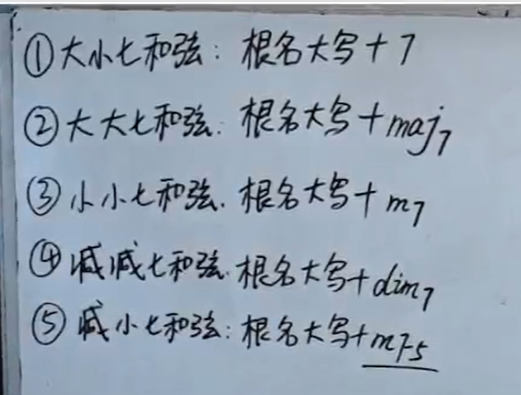 ①大小七和弦：根名大写+7
②大大七和弦：根名大写+maj7
③小小七和弦．根名大写+m7
④减减七和弦．根名大写+dim7
⑤减小七和弦：根名大写+m7-5